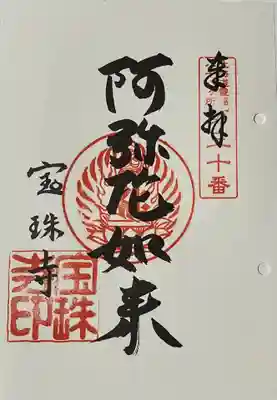 奉拝
十番
阿弥陀如来
宝珠寺
宝珠寺印